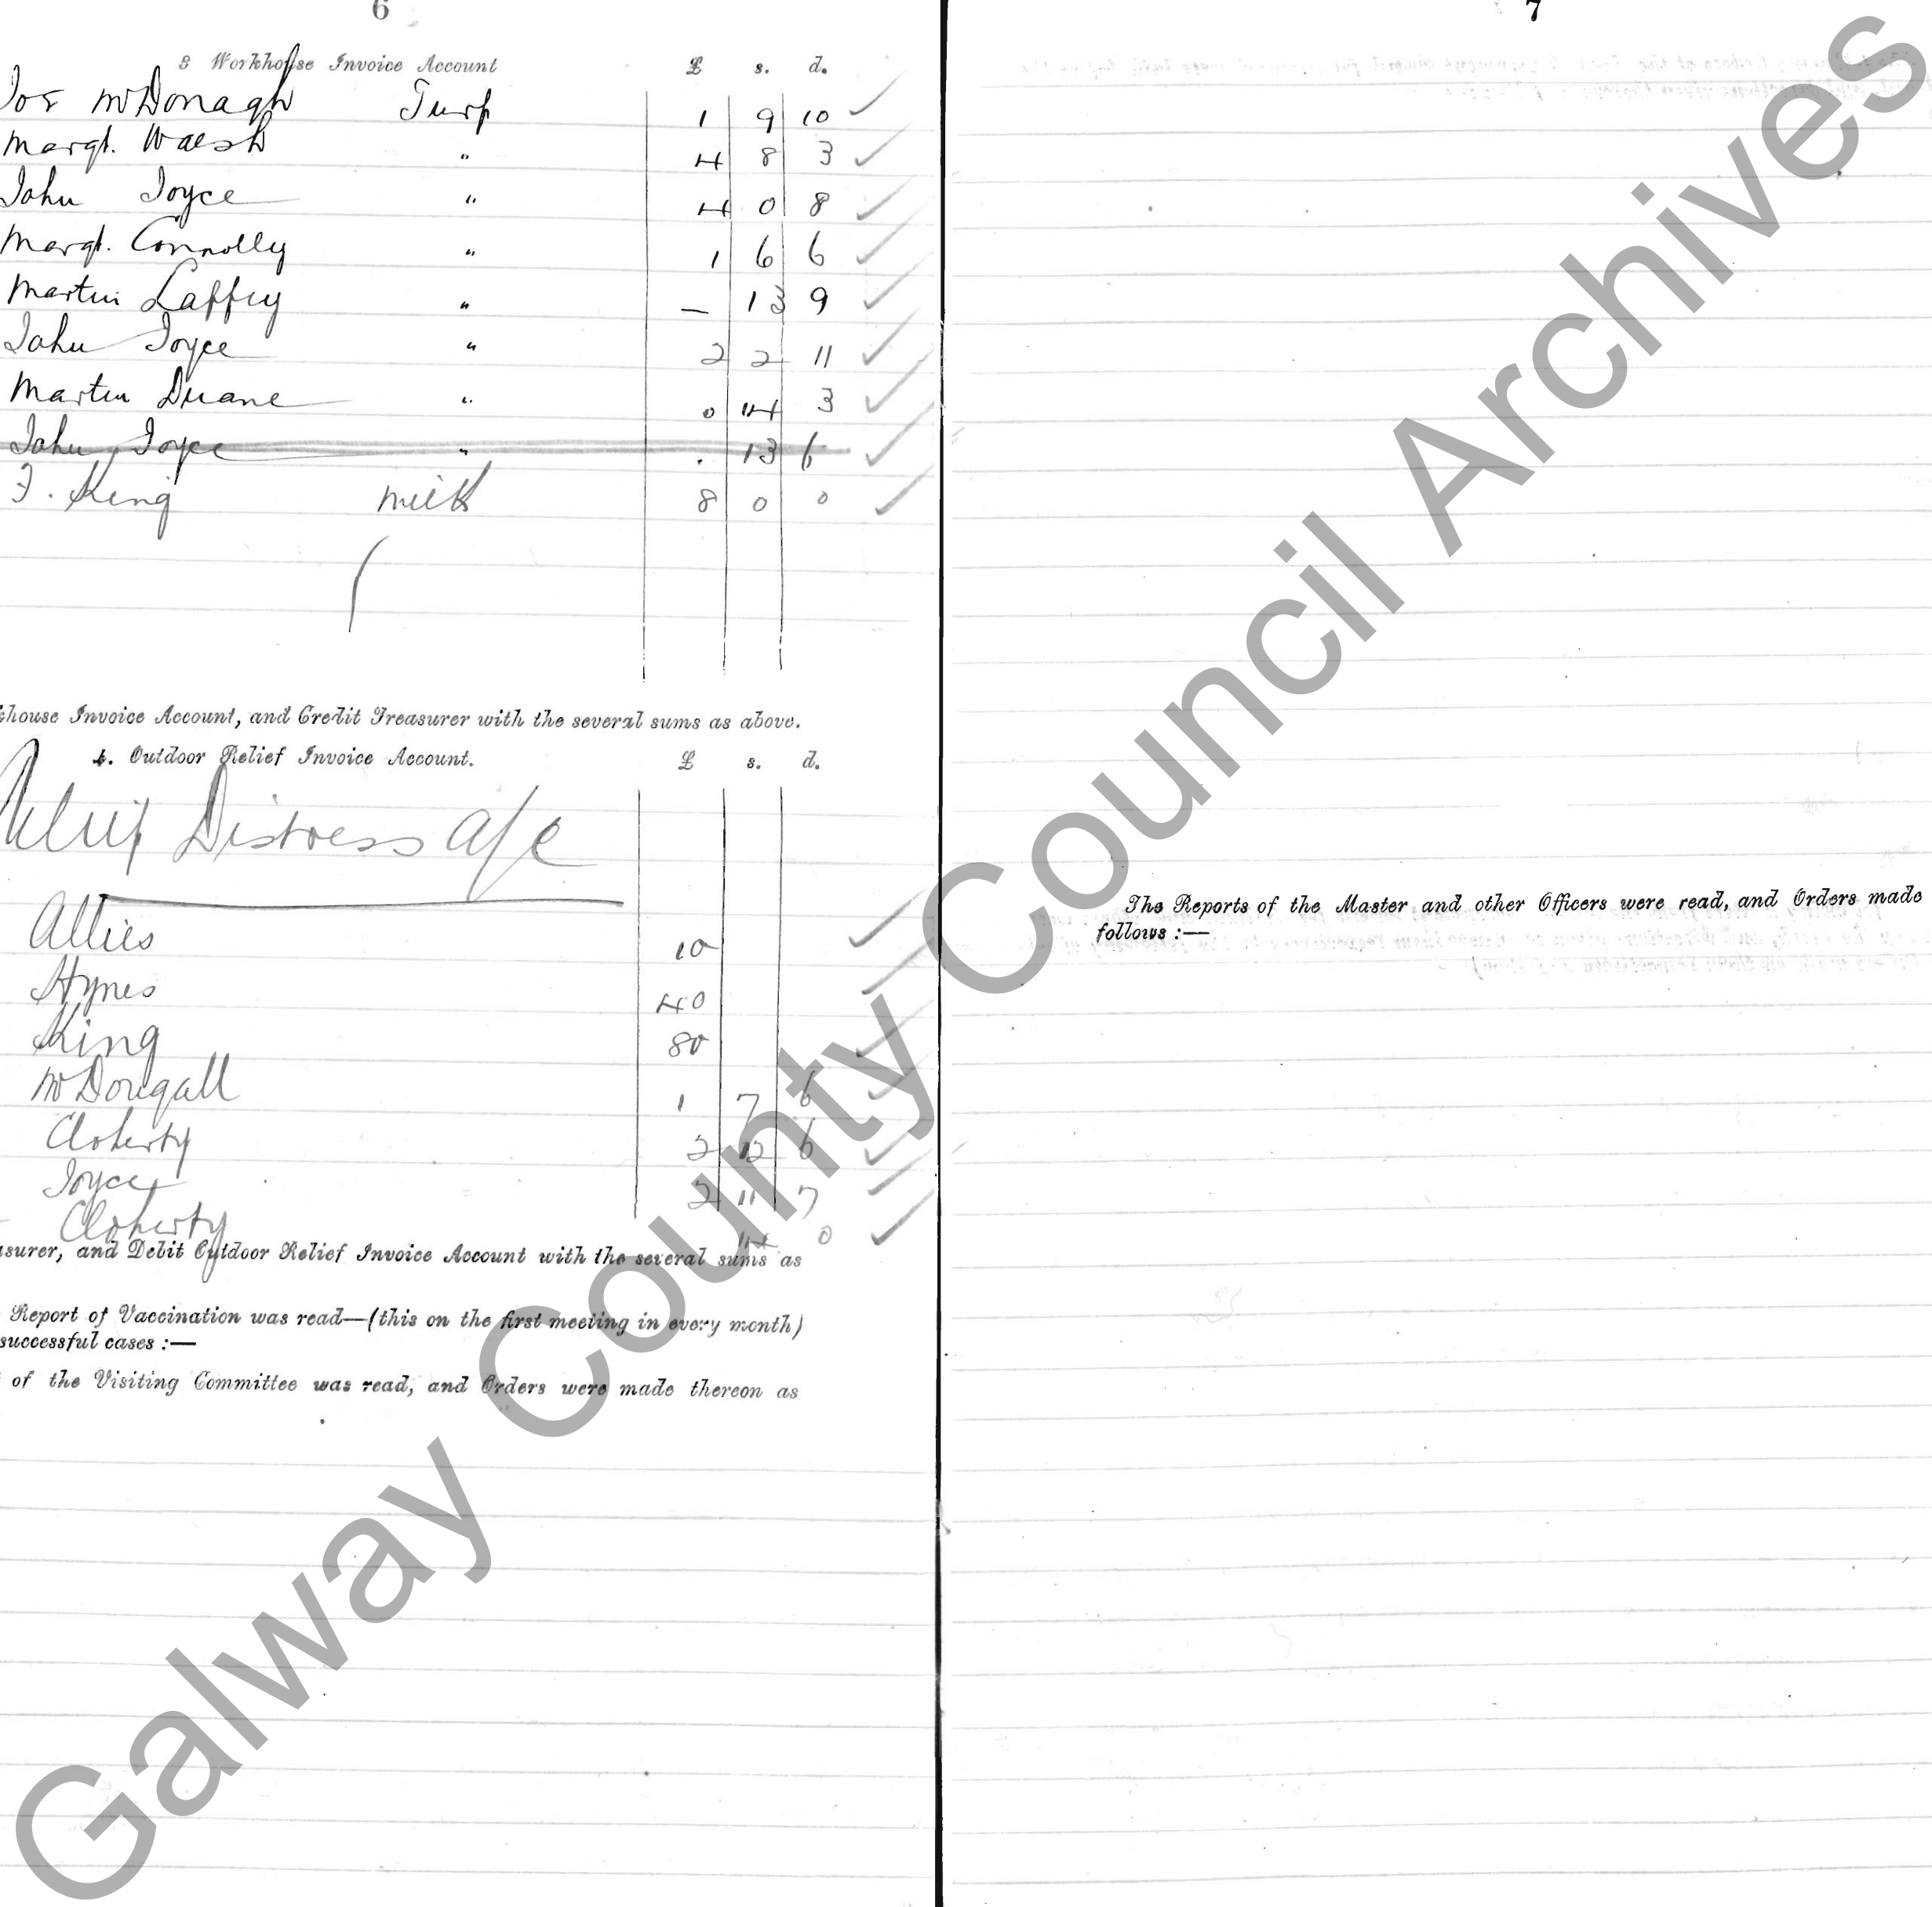 6
8 Workhouse Invoice Account £ s. d.
Jos McDonagh Turf 1 9 10
Margt. Walsh " 4 8 3
John Joyce " 4 0 8
Margt. Connolly " 1 6 6
Martin Laffey " — 13 9
John Joyce " 2 2 11
Martin Duane " 0 14 3
John Joyce " . 13 6
J. King milk 8 0 0
house Invoice Account, and Credit Treasurer with the several sums as above.
b. Outdoor Relief Invoice Account. £ s. d.
Relief Distress a/c
Allies 10
Hynes 40
King 80
McDougall 1 7 6
Cloherty 2 12 6
Joyce 2 11 7
Cloherty 14 0
surer, and Debit Outdoor Relief Invoice Account with the several sums as
Report of Vaccination was read—(this on the first meeting in every month)
successful cases :—
of the Visiting Committee was read, and Orders were made thereon as
7
The Reports of the Master and other Officers were read, and Orders made
follows :—
Galway County Council Archives